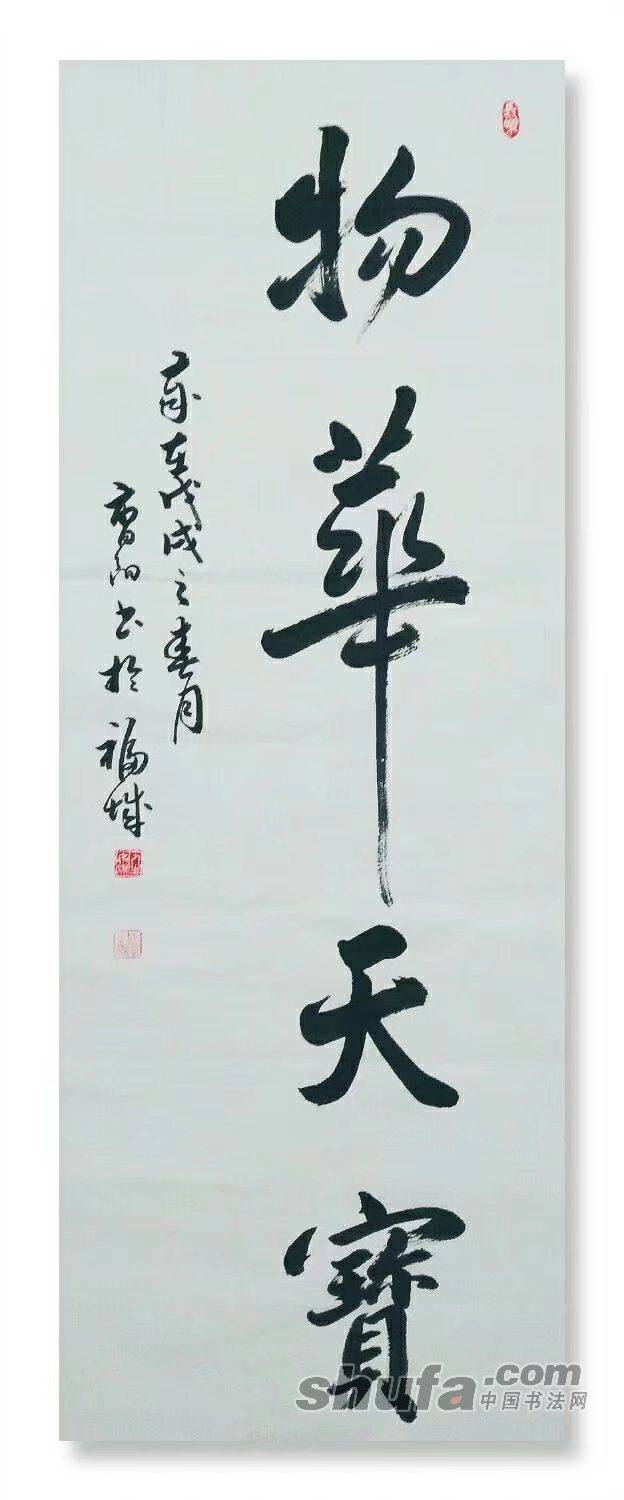 物華天寶
歲在戊戌之春月
書於福城
shufa.com
中国书法网